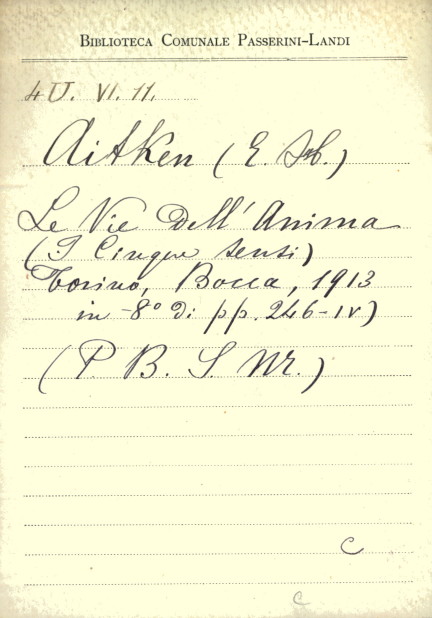 BIBLIOTECA COMUNALE PASSERINI-LANDI
4 U. VI. 11.
Aitken (E. H.)
Le Vie Dell' Anima
(I Cinque sensi)
Torino, Bocca, 1913
in -8° di pp. 246-IV)
(P. B. S. M.)
C
C